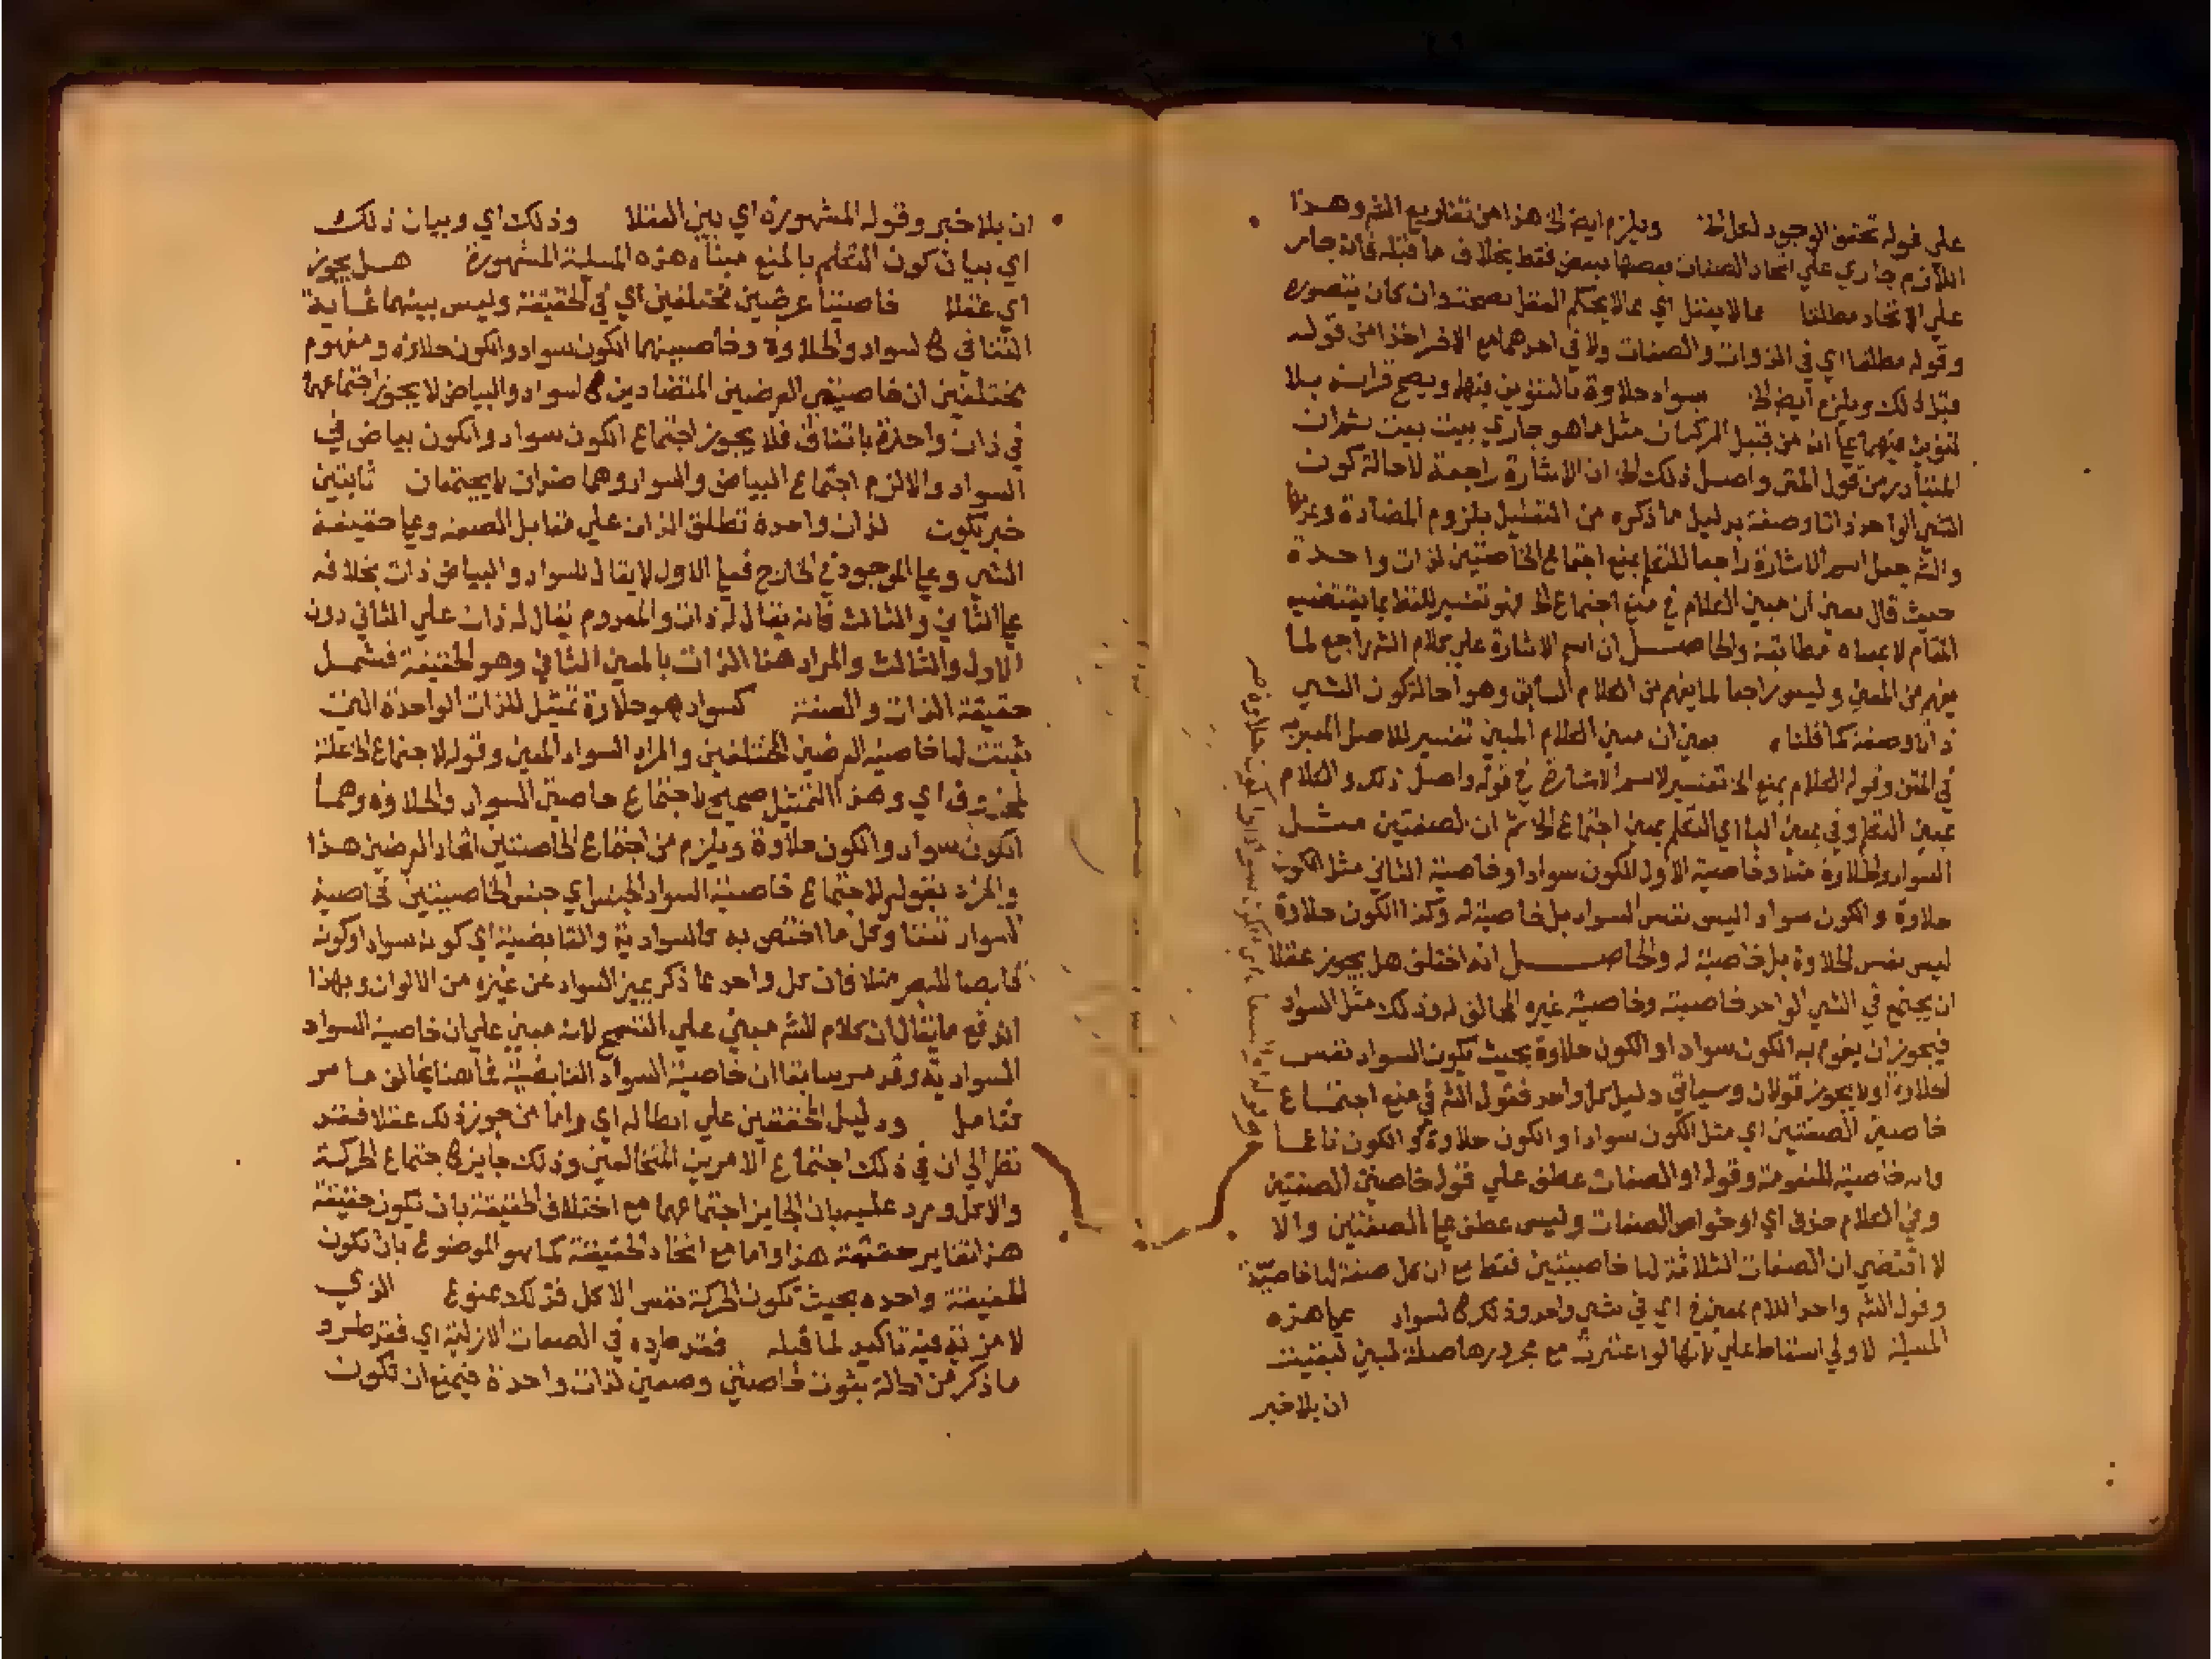 على قوله تحقق الوجود لعل الخ ويلزم ايض الخ هذا من تفاريع الشه وهـذا
اللازم جاري علي اتحاد الصفات ببعضها ببعض فقط بخلاف ما قبله فانه جار
علي الاتحاد مطلقا مما لا يعقل اي مما لا يحكم العقل بصحته وان كان يتصوره
وقوله مطلقا اي في الذوات والصفات ولا في احدهما مع الاخر اخذا من قوله
قبل ذلك ويلزم ايض الخ سواد حلاوة بالتنوين فيهما ويصح قراته بلا
تنوين فيهما علي انه من قبيل المركبات مثل ما هو جاري بيت بيت ثم ان
المتبادر من قول المتن واصل ذلك الخ ان الاشارة راجعة لاحالة كون
الشي الواحد ذاتا وصفة بدليل ما ذكره من التعليل بلزوم المضادة وعدمها
والشه جعل اسم الاشارة راجعا للتعلم بمنع اجتماع الخاصيتين لذات واحـدة
حيث قال يعني ان مبني الكلام في منع اجتماع الخ فهو تفسير للفظ بما يقتضيه
المقام لا بمعناه مطابقة والحاصـــل ان اسم الاشارة علي كلام الشه راجع لما
يفهم من المعني وليس راجعا لما يفهم من الكلام السابق وهو احالة كون الشي
ذاتا وصفة كما قلنا يعني ان مبني الكلام المبني تفسير للاصل المبين
في المتن وقوله الكلام بمنع الخ تفسير لاسم الاشارة في قوله واصل ذلك والكلام
بمعني التكلم وفي بمعني الباء اي التكلم بمعني اجتماع الخ ثم ان الصفتين مـثـل
السواد والحلاوة مثلا وخاصية الاول الكون سوادا وخاصية الثاني مثل الكون
حلاوة والكون سواد ليس نفس السواد بل خاصية له وكذا الكون حلاوة
ليس نفس الحلاوة بل خاصية له والحاصــــل انه اختلف هل يجوز عقلا
ان يجتمع في الشي الواحد خاصيته وخاصية غيره المخالف له وذلك مثل السواد
فيجوز ان يقوم به الكون سوادا والكون حلاوة بحيث يكون السواد نفس
الحلاوة او لا يجوز قولان وسياتي دليل كل واحد فقول الشه في منع اجتمـاع
خاصيتي الصفتين اي مثل الكون سوادا والكون حلاوة والكون ناعمـا
وانه خاصية للنعومة وقوله او الصفات عطف علي قوله خاصيتي الصفتين
وفي الكلام حذف اي او خواص الصفات وليس عطف علي الصفتين والا
لا اقتضي ان الصفات الثلاثة لها خاصيتين فقط مع ان كل صفة لها خاصية
وقول الشه واحد اللام بمعني في اي في شي واحد وذلك كالسواد علي هذه
المسيلة الاولي اسقاط علي لانها لو اعتبرت مع مجرورها صلة لمبني لبقيت
ان بلا خبر
ان بلا خبر وقوله المشهورة اي بين العقلا وذلك اي وبيان ذلك
اي بيان كون التكلم بالمنع مبناه هذه المسيلة المشهورة هـل يجوز
اي عقلا خاصيتا عرضين مختلفين اي في الحقيقة وليس بينهما غـاية
التنافي كالسواد والحلاوة وخاصيتهما الكون سواد والكون حلاوة ومفهوم
مختلفين ان خاصيتي العرضين المتضادين كالسواد والبياض لا يجوز اجتماعهما
في ذات واحدة باتفاق فلا يجوز اجتماع الكون سواد والكون بياض في
السواد والا لزم اجتماع البياض والسواد وهما ضدان لا يجتمعان ثابتين
خبر تكون لذات واحدة تطلق الذات علي مقابل الصفة وعلي حقيقـة
الشي وعلي الموجود في الخارج فعلي الاول لا يقال للسواد والبياض ذات بخلافه
علي الثاني والثالث فانه يقال له ذات والمعدوم يقال له ذات علي الثاني دون
الاول والثالث والمراد هنا الذات بالمعني الثاني وهو الحقيقة فيشمـل
حقيقة الذات والصفة كسواد هو حلاوة تمثيل للذات الواحدة التي
ثبتت لها خاصية العرضين المختلفين والمراد السواد المعين وقوله لاجتماع الخ علة
لمحذوف اي وهذا التمثيل صحيح لاجتماع خاصيتي السواد والحلاوة وهمـا
الكون سواد والكون حلاوة ويلزم من اجتماع الخاصيتين اتحاد العرضين هـذا
والمراد بقوله لاجتماع خاصية السواد الجنس اي جنس الخاصيتين فخاصية
السواد تفننا وكل ما اختص به كالسوادية والقابضية اي كونه سوادا وكونه
قابضا للبصر مثلا فان كل واحد مما ذكر يميز السواد عن غيره من الالوان وبهذا
اندفع ما يقال ان كلام الشه مبني علي التسمح لانه مبني علي ان خاصية السواد
السوادية وقد مر سابقا ان خاصية السواد القابضية فما هنا يخالف مـا مر
تامل ودليل المحققين علي ابطاله اي واما من جوز ذلك عقلا فقـد
نظر الي ان في ذلك اجتماع الامرين المتخالفين وذلك جايز كاجتماع الحركـة
والاكل ومرد عليه بان الجايز اجتماعهما مع اختلاف الحقيقة بان تكون حقيقة
هذا تغاير حقيقة هذا واما مع اتحاد الحقيقة كما هو الموضوع بان تكون
الحقيقة واحده بحيث تكون الحركة نفس الاكل فذلك ممنوع الذي
لا مزية فيه تاكيد لما قبله فقد طرده في الصفات الازلية اي فقد طـرد
ما ذكر من احالة ثبوت خاصيتي وصفين لذات واحدة فيمنع ان تكون